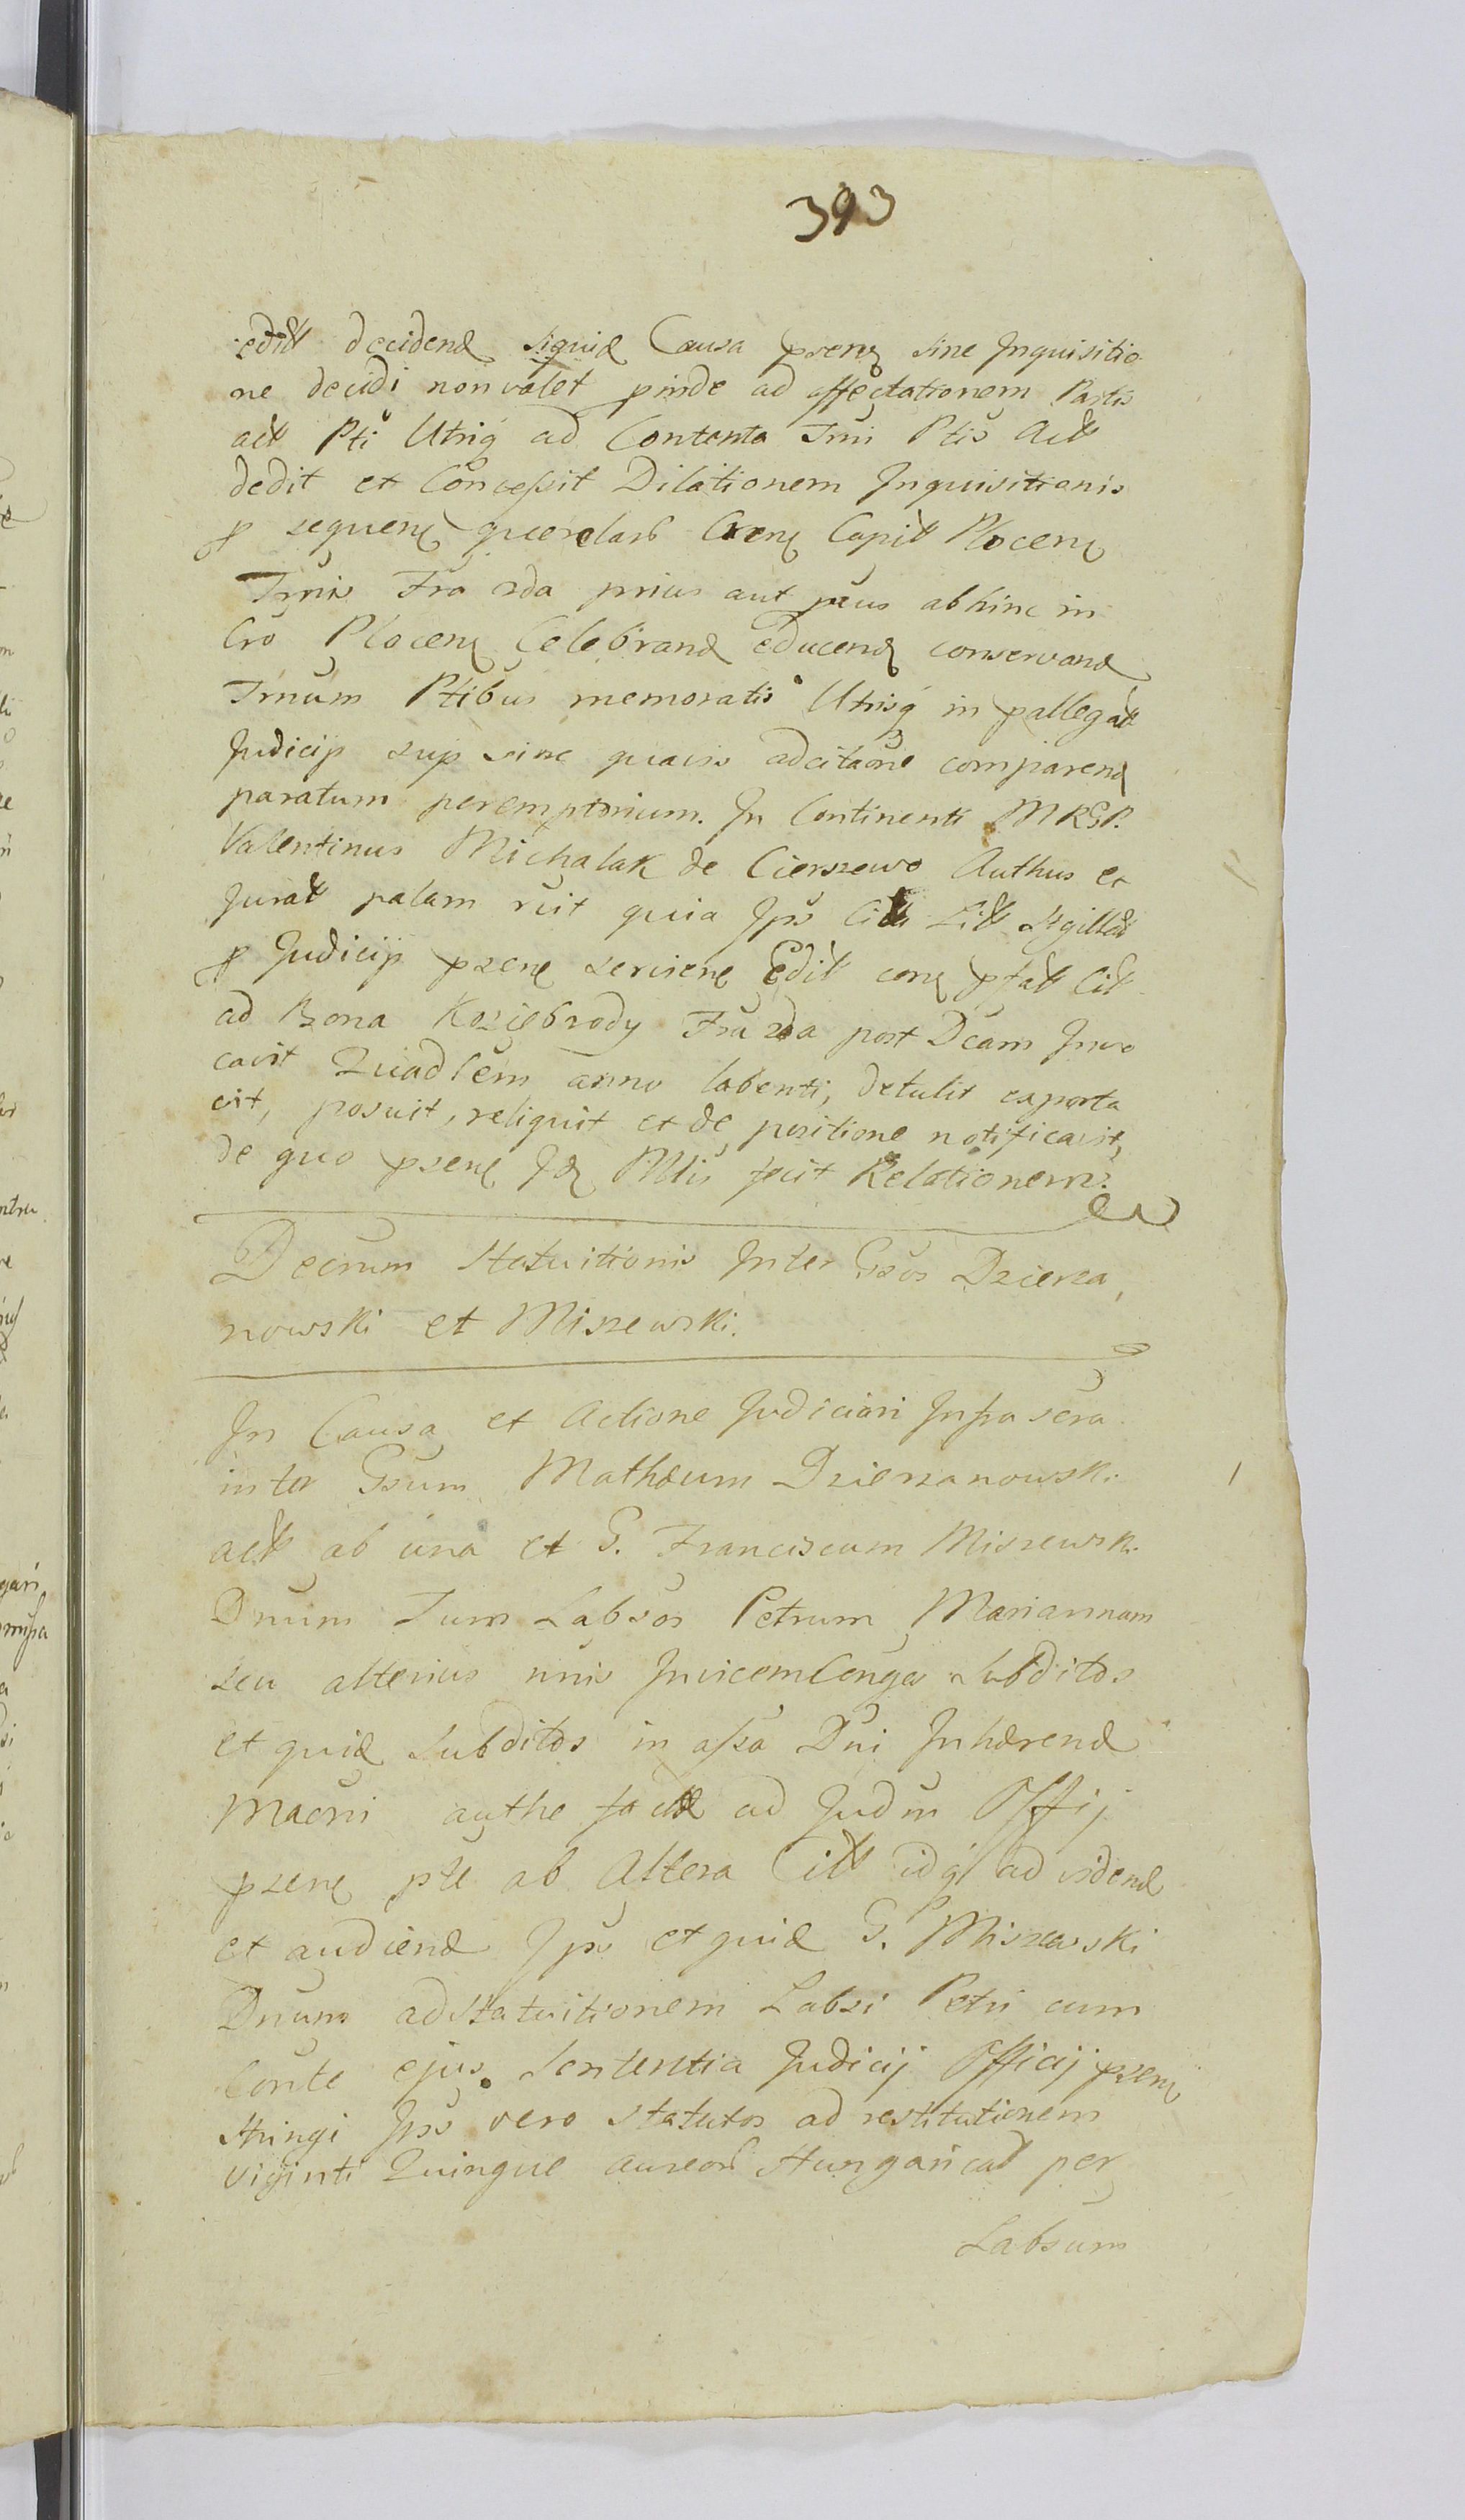 393
edit decidend siquid Causa psens sine Inquisitio
ne decidi non valet pinde ad affectationem Partis
act Pti Utriq ad Contenta Trni Ptis Act
dedit et Concessit Dilationem Inquisitionis
p sequens querelars Crens Capit Plocens
Trnis Fra 2da prius aut pius abhinc in
Cro Plocens Celebrand educend conservand
Trnum Ptibus memoratis Utrisq in pallegat
Judicijs sup sine quavis adcitaone comparend
paratum peremptorium. In Continenti MRGP.
Valentinus Michalak de Cierszewo Authus et
Jurat palam rcit quia Ips Citt Litt Sigillat
p Judicijs psens serviens Edit cons pfat Cit
ad Bona Koziebrody Fra 2da post Dcam Invo
cavit Quadlem anno labenti, detulit exporta
vit, posuit, reliquit et de positione notificavit,
de quo psens Id Mlis fecit Relationem.
Decrum Statuitionis Inter Gsos Dzierza,
nowski et Miszewski.
In Causa et Actione Judiciari Infra scra
inter Gsum Mathæum Dzierzanowski
act ab una et G. Franciscum Miszewsk.
Dnum Tum Labsos Petrum Mariannam
seu alterius nnis Invicem Conges Subditos
et quid Subditos in assa Dni Inhærend
Macni authe fact ad Judm Offij
psens pte ab Altera Citt idq ad vidend
et audiend Ips et quid G. Miszewski
Dnum ad Statuitionem Labsi Petri cum
Conte ejus Sententia Judicij Officij psens
Stringi Ips vero statutos ad restitutionem
Viginti Quinque aureor Hungarical per
Labsum